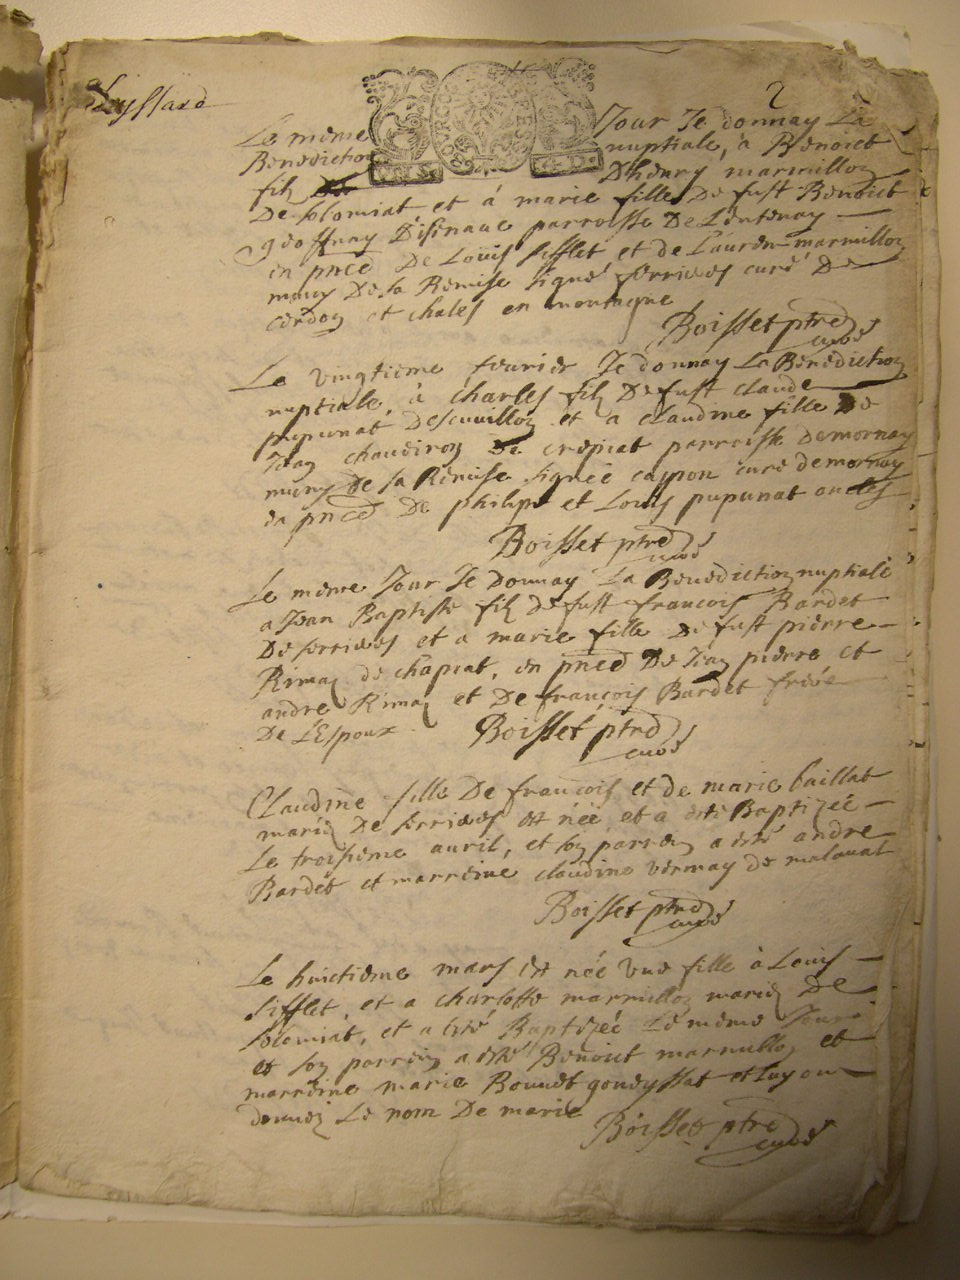 Leyssard
2
BOURGOG BRESSE
Le même Jour Je donnay La
Benediction nuptiale, à Benoict
filz D'henry marmilloz
De solomiat et à marie fille De fust Benoict
geoffray D'isenave parroisse De Lentenay
en pnce De Louis Sifflet et de Laurent marmilloz
muny De sa Remise signé serrieres curé De
cerdon et chales en montagne
Boisset ptre
curé
Le vingtieme feurier Je donnay La Benediction
nuptiale, à charles filz De fust claude
pupunat Descuvilloz et a claudine fille De
Jean chaudiron De crepiat parroisse De mornay
muny De sa Remise signée cappon curé de mornay
en pnce De philipe et Louis pupunat oncles
Boisset ptre
curé
Le même Jour Je Donnay La Benediction nuptiale
a Jean Baptiste filz De fust francois Bardet
De serrieres et a marie fille De fust pierre
Rimaz de chapiat, en pnce De Jean pierre et
andre Rimaz et De françois Bardet frere
De L'Espoux Boisset ptre
curé
Claudine fille De francois et de marie baillat
mariez De serrieres est née et a esté Baptizée
Le troisieme auril, et son parrein a esté andre
Bardet et marreine claudine vernay de malaual
Boisset ptre
curé
Le huictieme mars est née vne fille à Louis
Sifflet, et a charlotte marmilloz mariez De
solomiat, et a esté Baptizée Le même Jour
et son parrein a esté Benoict marmilloz et
marreine marie Bouuet goueyssat et luy on
donnez Le nom De marie
Boisset ptre
curé